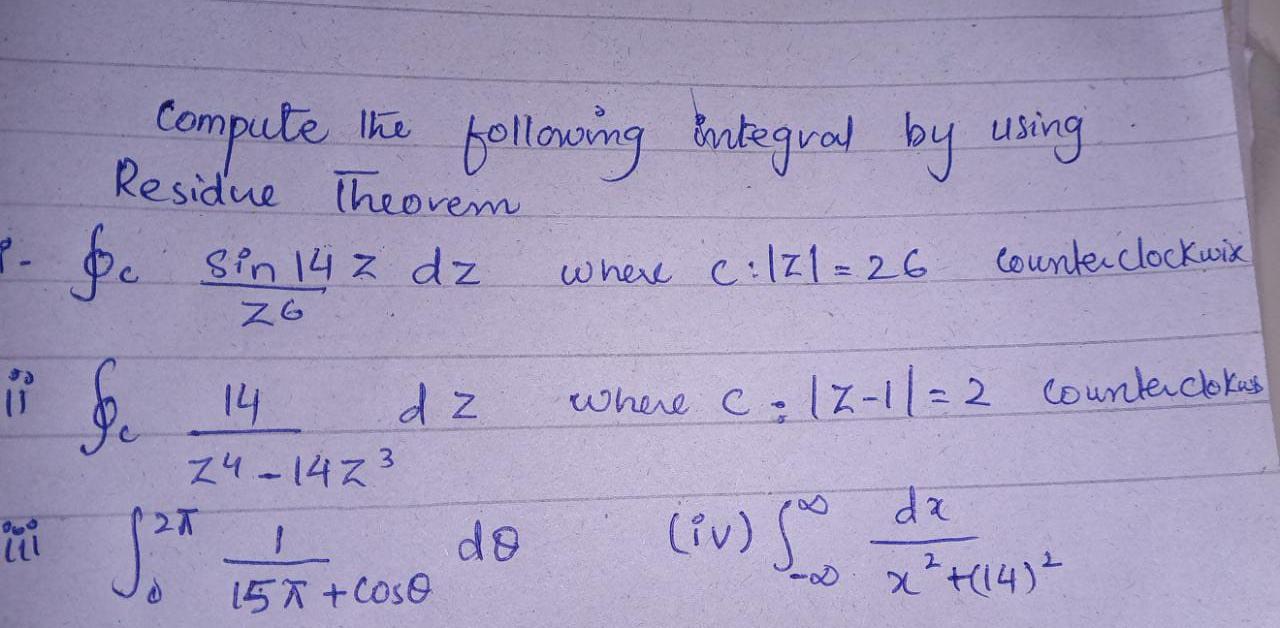 Compute the following integral by using
Residue Theorem
i- ∮c sin 14 z / z6 dz where c:|z|=26 counterclockwix
ii ∮c 14 / z⁴-14z³ dz where c:|z-1|=2 counterclokws
iii ∫₀^2π 1 / 15π+cosθ dθ (iv) ∫₋∞^∞ dx / x²+(14)²